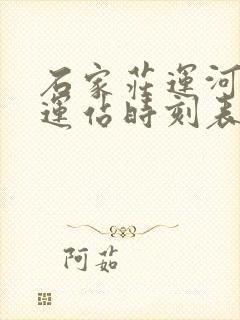 石家莊運河
運佔時刻表
阿茹